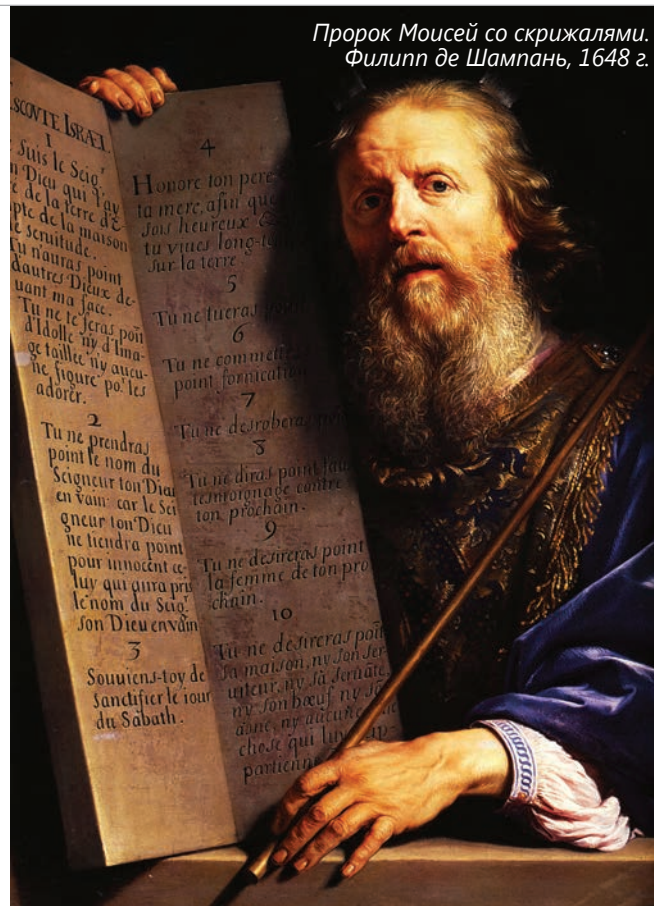 Пророк Моисей со скрижалями.
Филипп де Шампань, 1648 г.
ESCOVTE ISRAEL
1
Suis le Seigr
Dieu qui t'ay
de la terre d'E
de la maison
de seruitude.
Tu n'auras point
d'autres Dieux de-
uant ma face.
Tu ne te feras poin
d'Idolle ny d'Ima-
ge taillée ny aucu-
ne figure po.r les
adorer.
2
Tu ne prendras
point le nom du
Seigneur ton Dieu
en vain: car le Sei
gneur ton Dieu
ne tiendra point
pour innocent ce-
luy qui aura pris
le nom du Seigr
son Dieu en vain
3
Souuiens-toy de
Sanctifier le iour
du Sabath.
4
Honore ton pere
ta mere, afin que
sois heureux
tu viues long-tem
sur la terre
5
Tu ne tueras point
6
Tu ne commettra
point fornication
7
Tu ne desroberas
8
Tu ne diras point faux
tesmoignage contre
ton prochain.
9
Tu ne desireras point
la femme de ton pro
chain.
10
Tu ne desireras poin
sa maison, ny son ser
uiteur, ny sa seruāte,
ny son bœuf ny sō
asne, ny aucune
chose qui luy
partienn